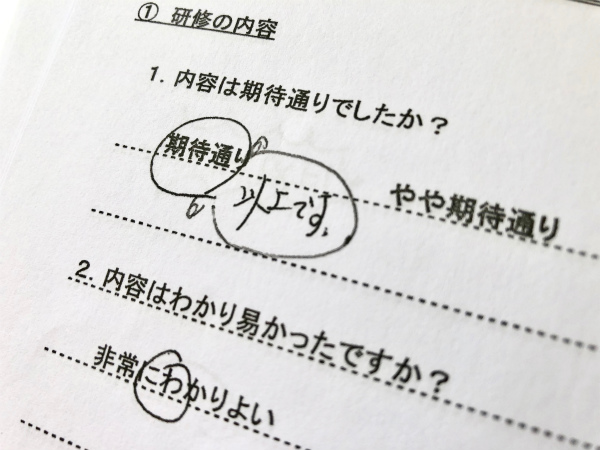 ① 研修の内容
1. 内容は期待通りでしたか？
期待通り やや期待通り
以上です。
2. 内容はわかり易かったですか？
非常にわかりよい